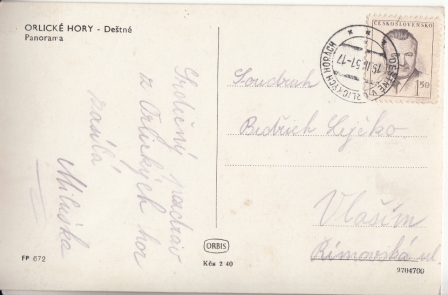 ORLICKÉ HORY - Deštné
Panorama
Srdečný pozdrav
z Orlických hor
zasílá
Miluška
FP 672
ORBIS
Kčs 2 40
ČESKOSLOVENSKO
1,50
Soudruh
Bedřich
Vlašim
Římovská ul
2704700